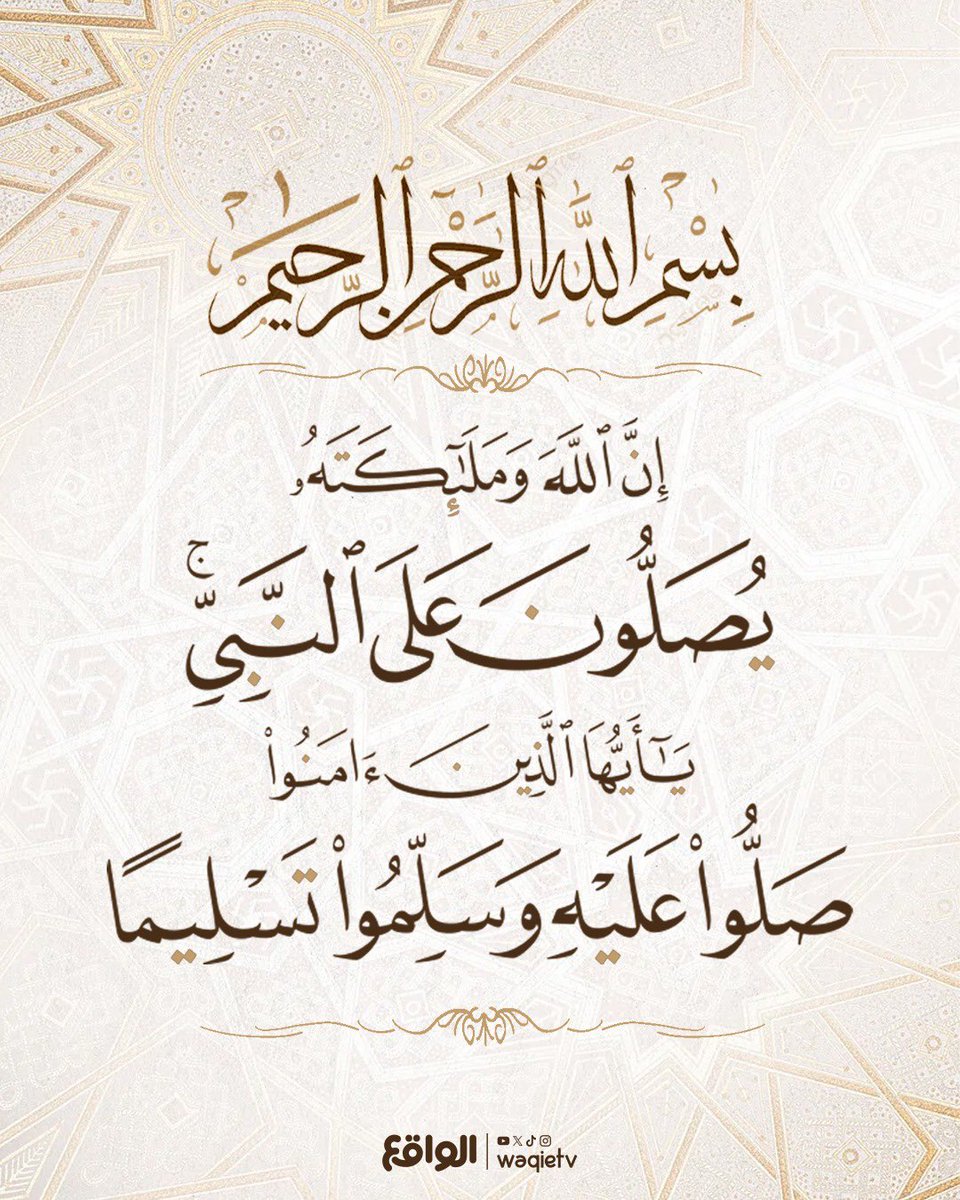 بِسْمِ ٱللَّهِ ٱلرَّحْمَٰنِ ٱلرَّحِيمِ
إِنَّ ٱللَّهَ وَمَلَٰٓئِكَتَهُۥ
يُصَلُّونَ عَلَى ٱلنَّبِيِّۚ
يَٰٓأَيُّهَا ٱلَّذِينَ ءَامَنُوا۟
صَلُّوا۟ عَلَيْهِ وَسَلِّمُوا۟ تَسْلِيمًا
الواقع | wəqietv